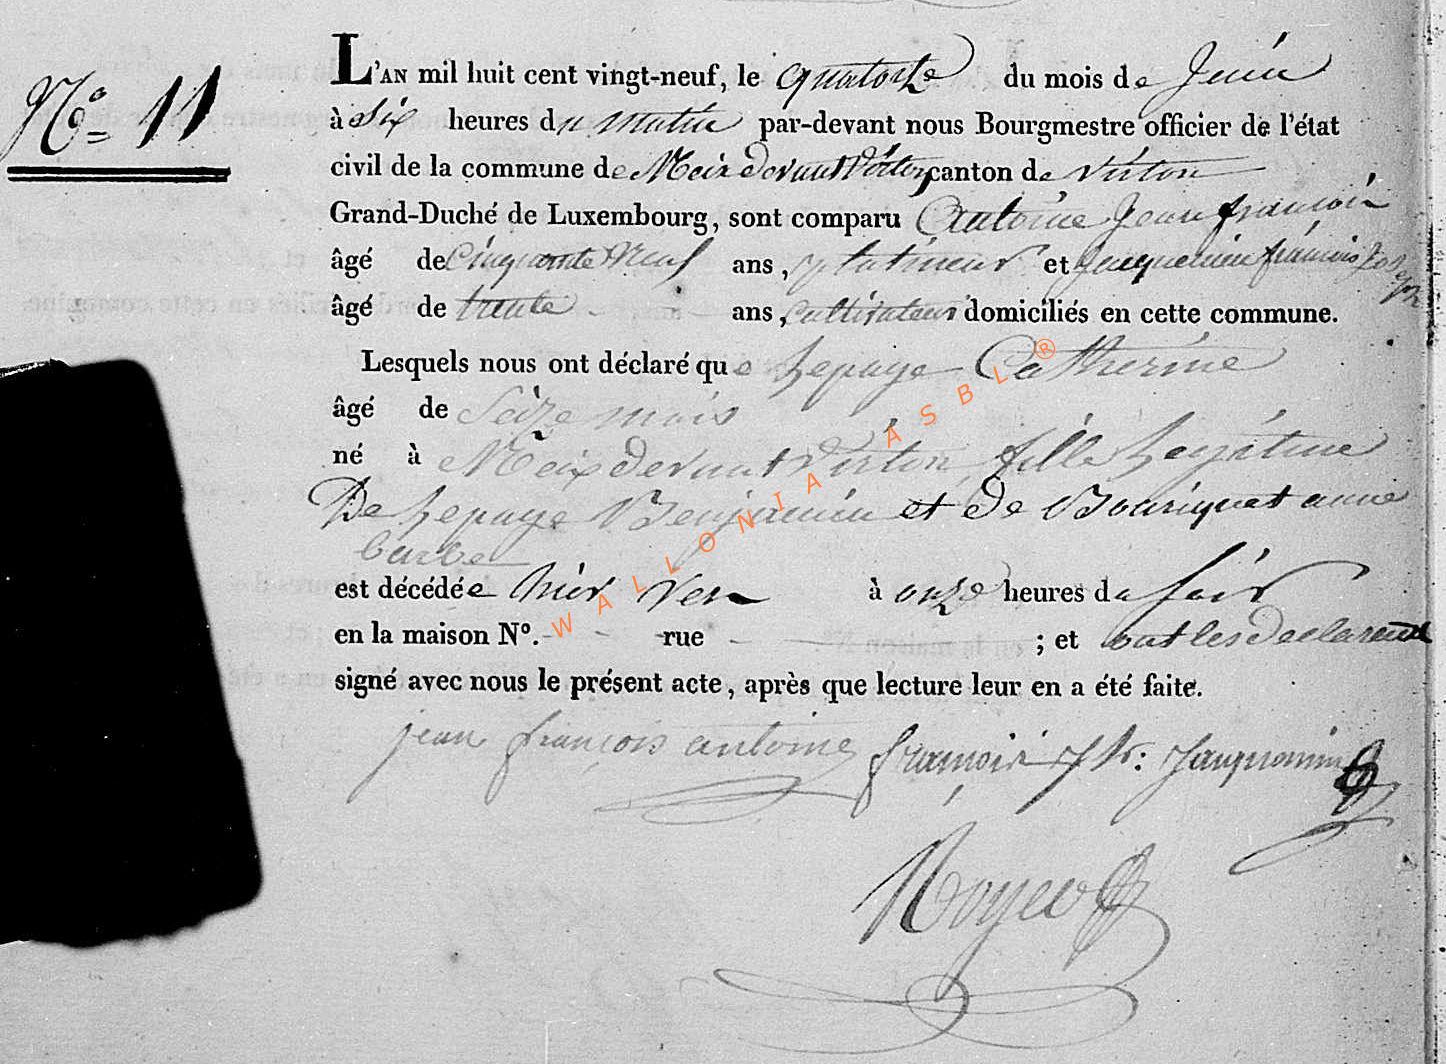 No. 11
L'AN mil huit cent vingt-neuf, le quatorze du mois de Juin
à six heures du matin par-devant nous Bourgmestre officier de l'état
civil de la commune de Meix devant Virton canton de Virton
Grand-Duché de Luxembourg, sont comparu Antoine Jean françois
âgé de Cinquante Neuf ans, et Jacquemin françois Joseph
âgé de trente ans, cultivateur domiciliés en cette commune.
Lesquels nous ont déclaré que Lepage Catherine
âgé de Seize mois
né à Meix devant Virton fille Legitime
De Lepage Benjamin et de Bouriquet anne
barbe
est décédée hier vers à onze heures du soir
en la maison No. - - rue - ; et ont les declarans
signé avec nous le présent acte, après que lecture leur en a été faite.
jean françois antoine françois Jh: Jacquemin
WALLONIA ASBL ®